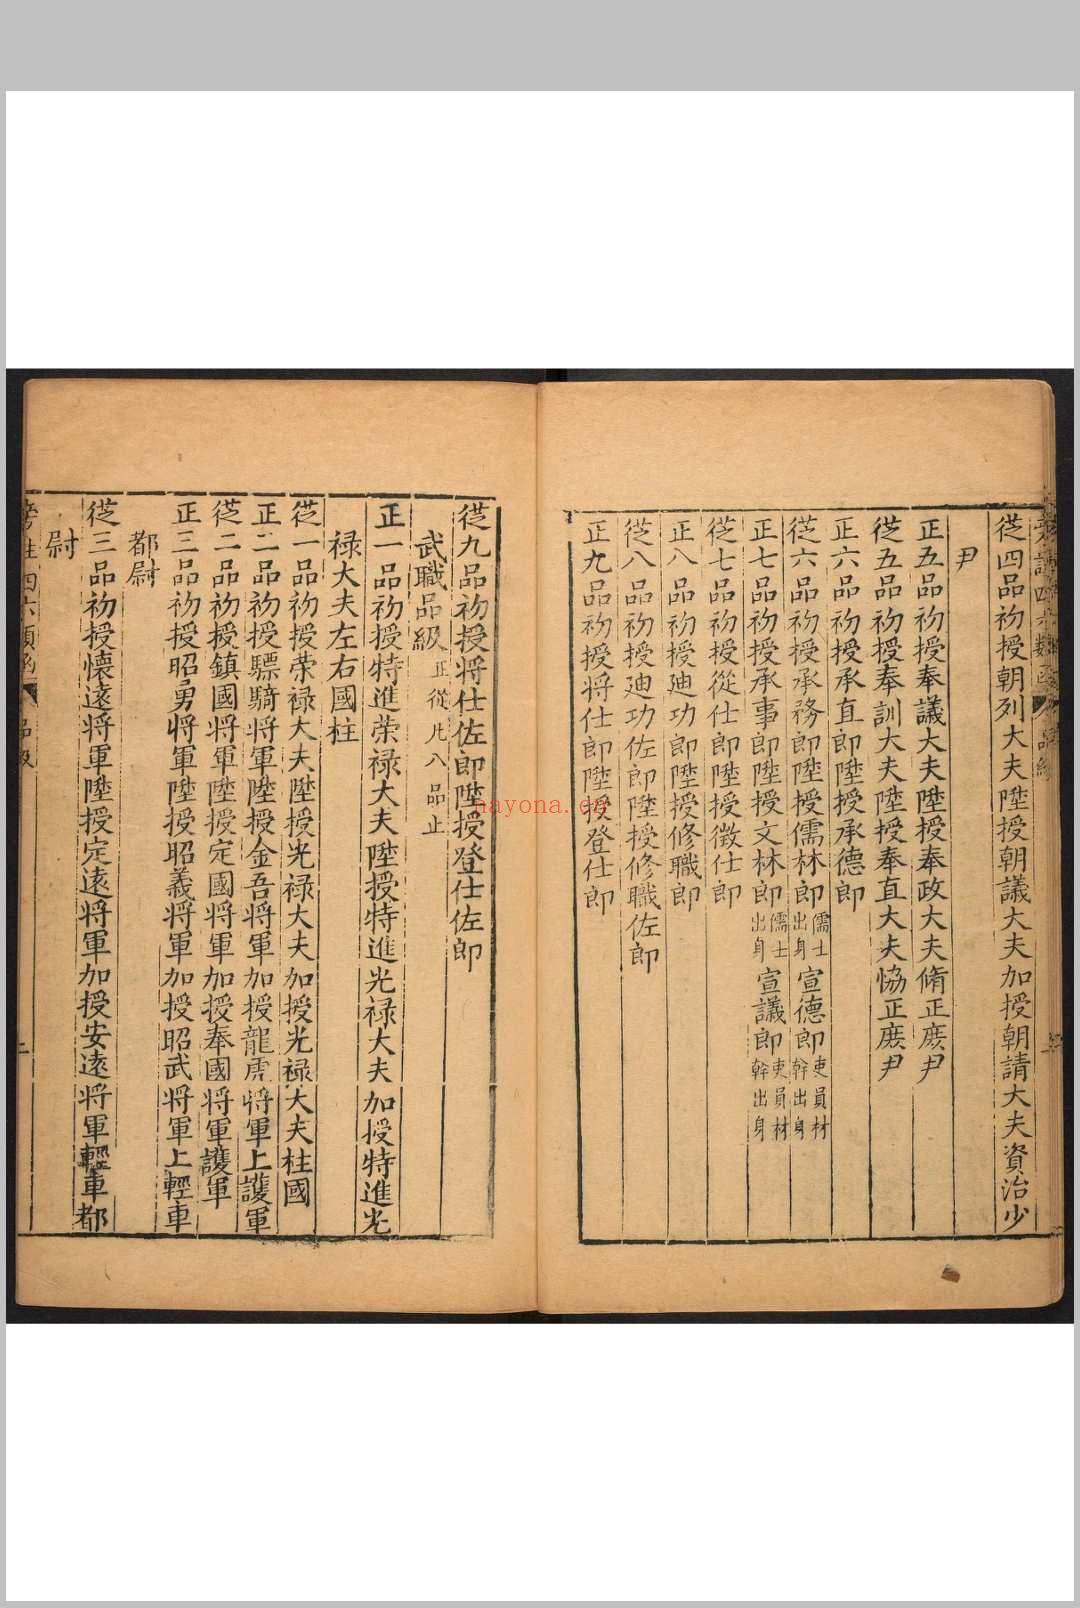 從四品初授朝列大夫陞授朝議大夫加授朝請大夫資治少
尹
正五品初授奉議大夫陞授奉政大夫脩正庶尹
從五品初授奉訓大夫陞授奉直大夫恊正庶尹
正六品初授承直郎陞授承德郎
從六品初授承務郎陞授儒林郎儒士出身宣德郎吏員材幹出身
正七品初授承事郎陞授文林郎儒士出身宣議郎吏員材幹出身
從七品初授從仕郎陞授徵仕郎
正八品初授廸功郎陞授修職郎
從八品初授廸功佐郎陞授修職佐郎
正九品初授将仕郎陞授登仕郎
從九品初授将仕佐郎陞授登仕佐郎
武職品級正從凡八品止
正一品初授特進荣禄大夫陞授特進光禄大夫加授特進光
禄大夫左右國柱
從一品初授荣禄大夫陞授光禄大夫加授光禄大夫柱國
正二品初授驃騎将軍陞授金吾将軍加授龍虎将軍上護軍
從二品初授鎮國将軍陞授定國将軍加授奉國将軍護軍
正三品初授昭勇将軍陞授昭義将軍加授昭武将軍上輕車
都尉
從三品初授懷遠将軍陞授定遠将軍加授安遠将軍輕車都
尉
nayona.cn